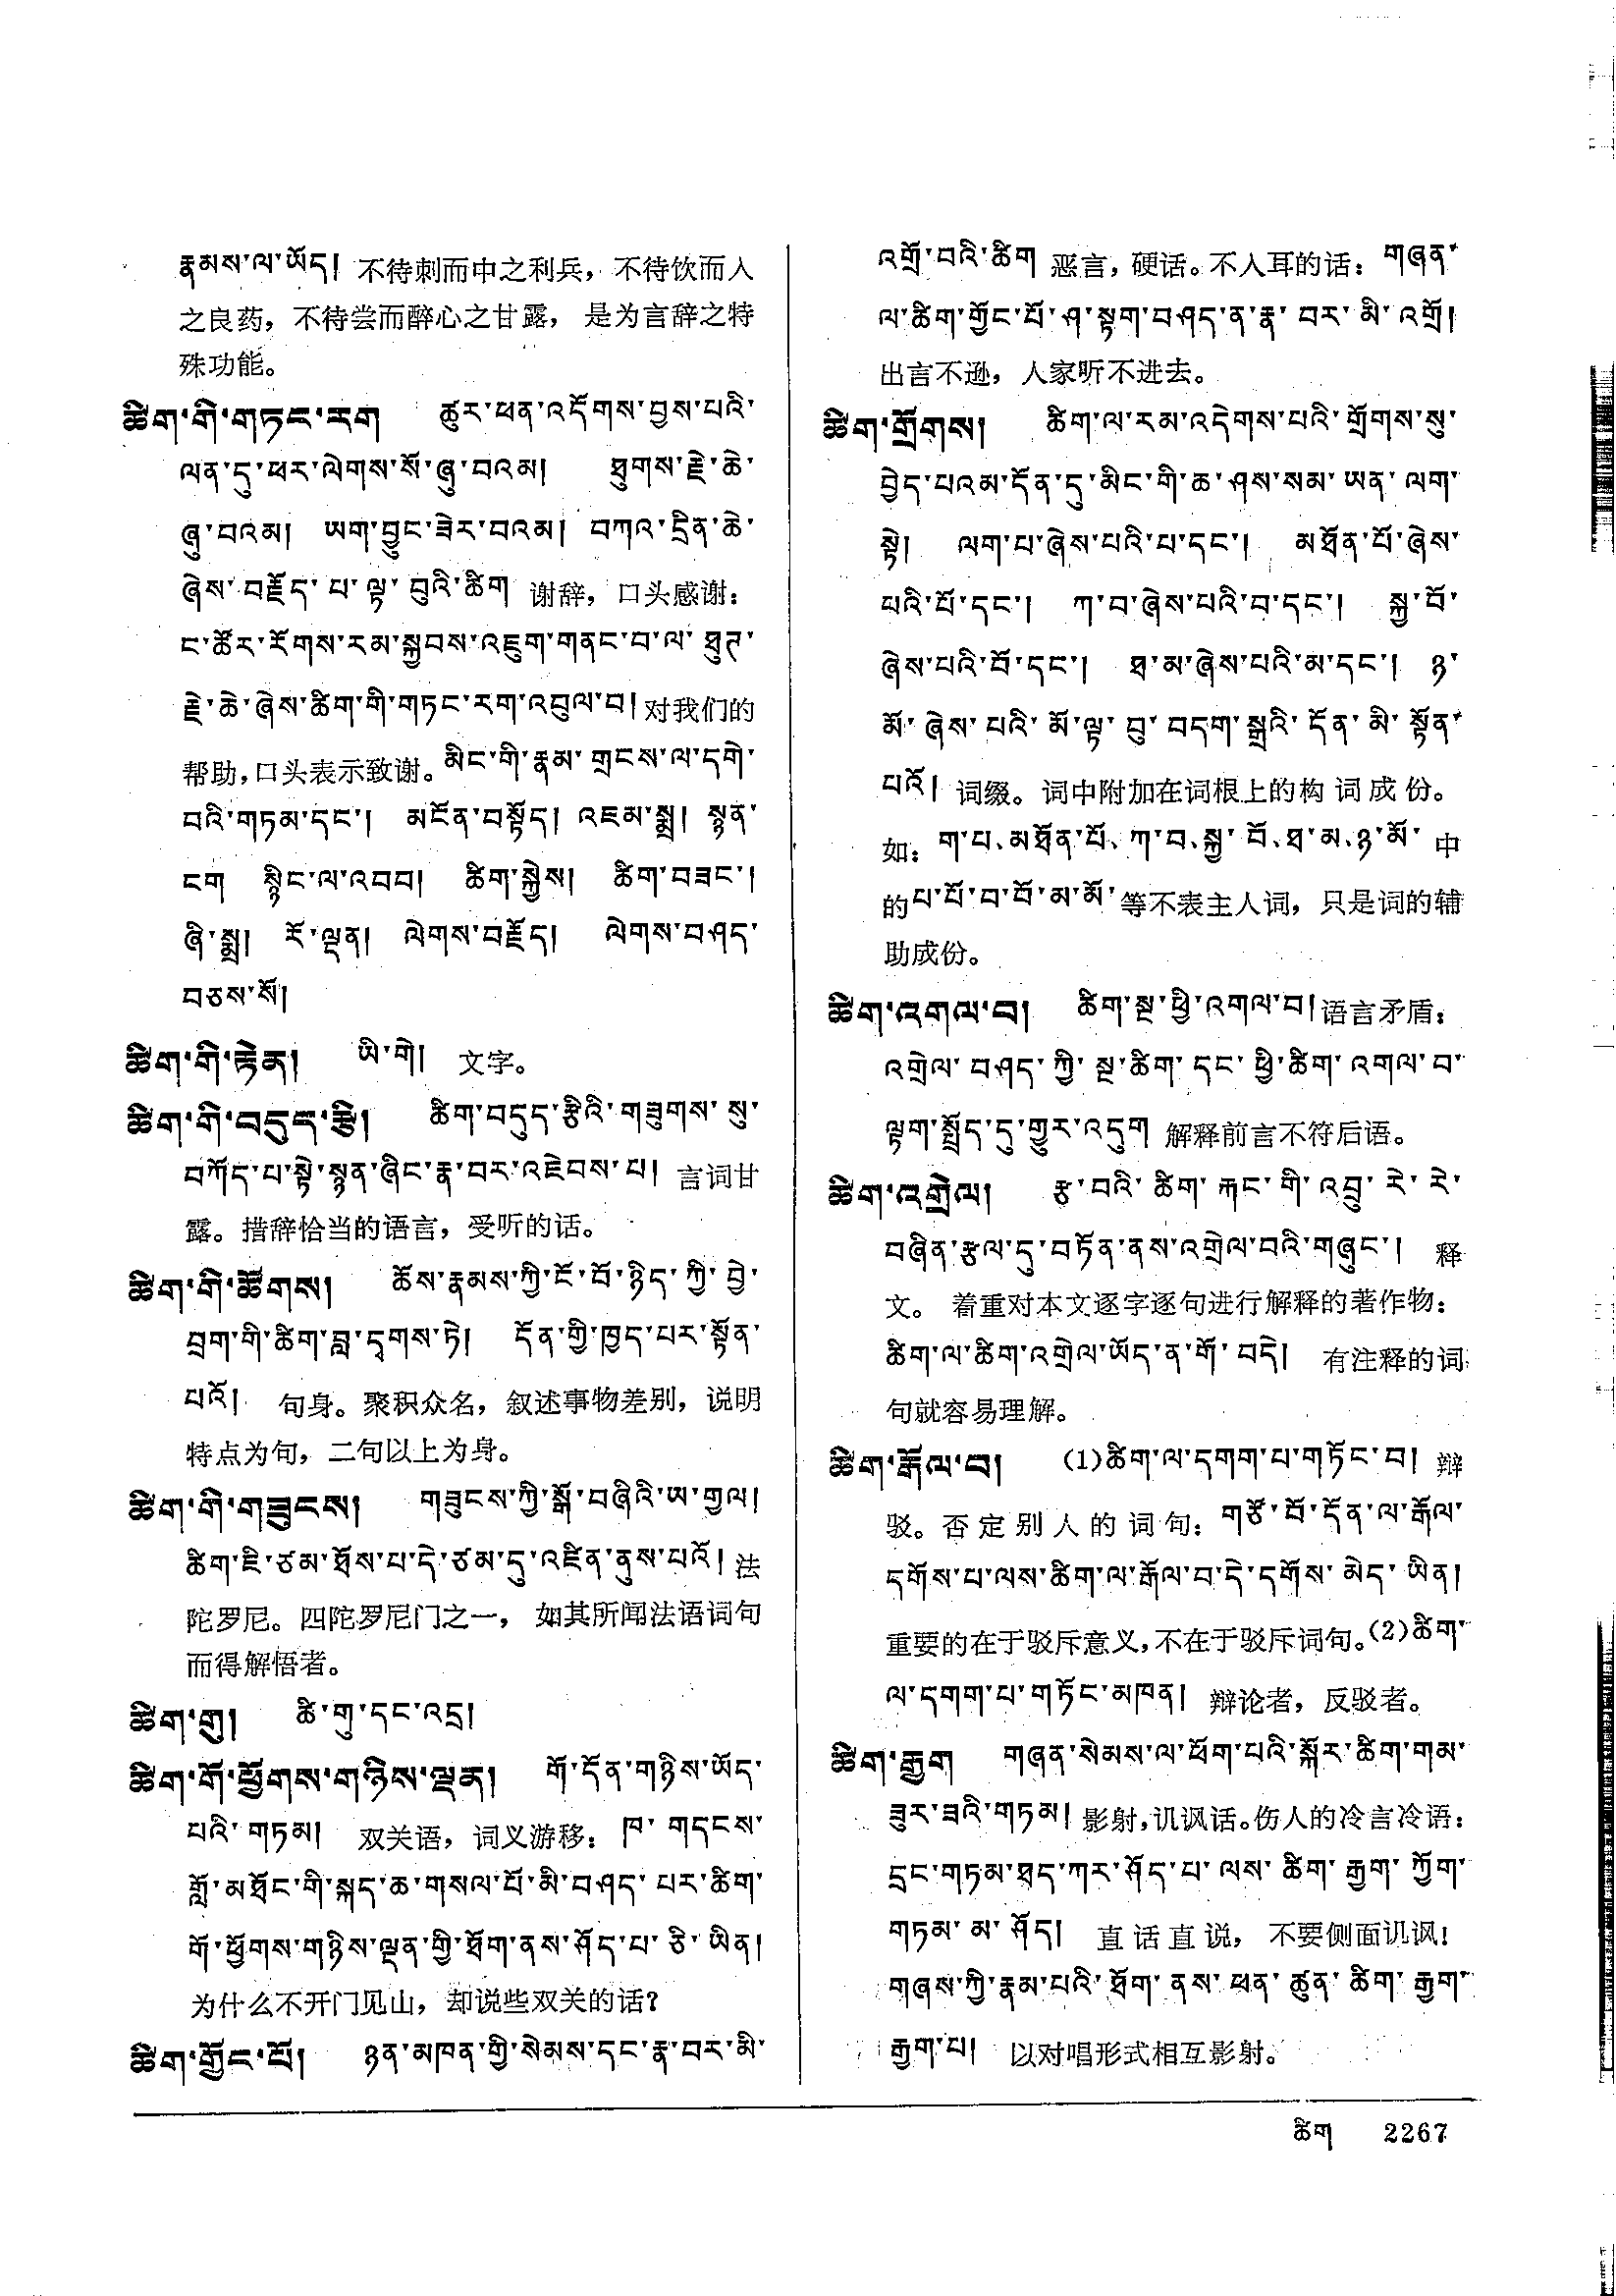 རྣམས་ལ་ཡོད། 不待刺而中之利兵，不待饮而人
之良药，不待尝而醉心之甘露，是为言辞之特
殊功能。
ཚིག་གི་གཏང་རག ཚུར་ཕན་འདོགས་བྱས་པའི་
ལན་དུ་ཕར་ལེགས་སོ་ཞུ་བའམ། ཐུགས་རྗེ་ཆེ་
ཞུ་བའམ། ཡག་བྱུང་ཟེར་བའམ། བཀའ་དྲིན་ཆེ་
ཞེས་བརྗོད་པ་ལྟ་བུའི་ཚིག 谢辞，口头感谢：
ང་ཚོར་རོགས་རམ་སྐྱབས་འཇུག་གནང་བ་ལ་ཐུཊ་
རྗེ་ཆེ་ཞེས་ཚིག་གི་གཏང་རག་འབུལ་བ། 对我们的
帮助，口头表示致谢。མིང་གི་རྣམ་གྲངས་ལ་དགེ་
བའི་གཏམ་དང་། མངོན་བསྟོད། འཇམ་སྨྲ། སྙན་
ངག སྙིང་ལ་འབབ། ཚིག་སྐྱེས། ཚིག་བཟང་།
ཞི་སྨྲ། རོ་ལྡན། ལེགས་བརྗོད། ལེགས་བཤད་
བཅས་སོ།
ཚིག་གི་རྟེན། ཡི་གེ། 文字。
ཚིག་གི་བདུད་རྩི། ཚིག་བདུད་རྩིའི་གཟུགས་སུ་
བཀོད་པ་སྟེ་སྙན་ཞིང་རྣ་བར་འཇེབས་པ། 言词甘
露。措辞恰当的语言，受听的话。
ཚིག་གི་ཚོགས། ཆོས་རྣམས་ཀྱི་ངོ་བོ་ཉིད་ཀྱི་བྱེ་
བྲག་གི་ཚིག་བླ་དྭགས་ཏེ། དོན་གྱི་ཁྱད་པར་སྟོན་
པའོ། 句身。聚积众名，叙述事物差别，说明
特点为句，二句以上为身。
ཚིག་གི་གཟུངས། གཟུངས་ཀྱི་སྒོ་བཞིའི་ཨ་གྱལ།
ཚིག་ཇི་ཙམ་ཐོས་པ་དེ་ཙམ་དུ་འཛིན་ནུས་པའོ། 法
陀罗尼。四陀罗尼门之一，如其所闻法语词句
而得解悟者。
ཚིག་གུ། ཚི་གུ་དང་འདྲ།
ཚིག་གོ་ཕྱོགས་གཉིས་ལྡན། གོ་དོན་གཉིས་ཡོད་
པའི་གཏམ། 双关语，词义游移：ཁ་གདངས་
གློ་མཐོང་གི་སྐད་ཆ་གསལ་པོ་མི་བཤད་པར་ཚིག་
གོ་ཕྱོགས་གཉིས་ལྡན་གྱི་ཐོག་ནས་ཤོད་པ་ཅི་ཡིན།
为什么不开门见山，却说些双关的话？
ཚིག་གྱོང་པོ། ཉན་མཁན་གྱི་སེམས་དང་རྣ་བར་མི་
འགྲོ་བའི་ཚིག 恶言，硬话。不入耳的话：གཞན་
ལ་ཚིག་གྱོང་པོ་ཤ་སྟག་བཤད་ན་རྣ་བར་མི་འགྲོ།
出言不逊，人家听不进去。
ཚིག་གྲོགས། ཚིག་ལ་རམ་འདེགས་པའི་གྲོགས་སུ་
བྱེད་པའམ་དོན་དུ་མིང་གི་ཆ་ཤས་སམ་ཡན་ལག་
སྟེ། ལག་པ་ཞེས་པའི་པ་དང་། མཐོན་པོ་ཞེས་
པའི་པོ་དང་། ཀ་བ་ཞེས་པའི་བ་དང་། སྐྱ་བོ་
ཞེས་པའི་བོ་དང་། ཐ་མ་ཞེས་པའི་མ་དང་། ཉ་
མོ་ཞེས་པའི་མོ་ལྟ་བུ་བདག་སྒྲའི་དོན་མི་སྟོན་
པའོ། 词缀。词中附加在词根上的构词成份。
如：ག་པ、མཐོན་པོ、ཀ་བ、སྐྱ་བོ、ཐ་མ、ཉ་མོ་ 中
的པ་པོ་བ་བོ་མ་མོ་ 等不表主人词，只是词的辅
助成份。
ཚིག་འགལ་བ། ཚིག་སྔ་ཕྱི་འགལ་བ། 语言矛盾：
འགྲེལ་བཤད་ཀྱི་སྔ་ཚིག་དང་ཕྱི་ཚིག་འགལ་བ་
ལྟག་སྤྲོད་དུ་གྱུར་འདུག 解释前言不符后语。
ཚིག་འགྲེལ། རྩ་བའི་ཚིག་རྐང་གི་འབྲུ་རེ་རེ་
བཞིན་རྩལ་དུ་བཏོན་ནས་འགྲེལ་བའི་གཞུང་། 释
文。着重对本文逐字逐句进行解释的著作物：
ཚིག་ལ་ཚིག་འགྲེལ་ཡོད་ན་གོ་བདེ། 有注释的词
句就容易理解。
ཚིག་རྒོལ་བ། (1)ཚིག་ལ་དགག་པ་གཏོང་བ། 辩
驳。否定别人的词句：གཙོ་བོ་དོན་ལ་རྒོལ་
དགོས་པ་ལས་ཚིག་ལ་རྒོལ་བ་དེ་དགོས་མེད་ཡིན།
重要的在于驳斥意义，不在于驳斥词句。(2)ཚིག་
ལ་དགག་པ་གཏོང་མཁན། 辩论者，反驳者。
ཚིག་རྒྱག གཞན་སེམས་ལ་ཕོག་པའི་སྐོར་ཚིག་གམ་
ཟུར་ཟའི་གཏམ། 影射，讥讽话。伤人的冷言冷语：
དྲང་གཏམ་ཐད་ཀར་ཤོད་པ་ལས་ཚིག་རྒྱག་ཀྱོག་
གཏམ་མ་ཤོད། 直话直说，不要侧面讥讽！
གཞས་ཀྱི་རྣམ་པའི་ཐོག་ནས་ཕན་ཚུན་ཚིག་རྒྱག་
རྒྱག་པ། 以对唱形式相互影射。
ཚིག 2267